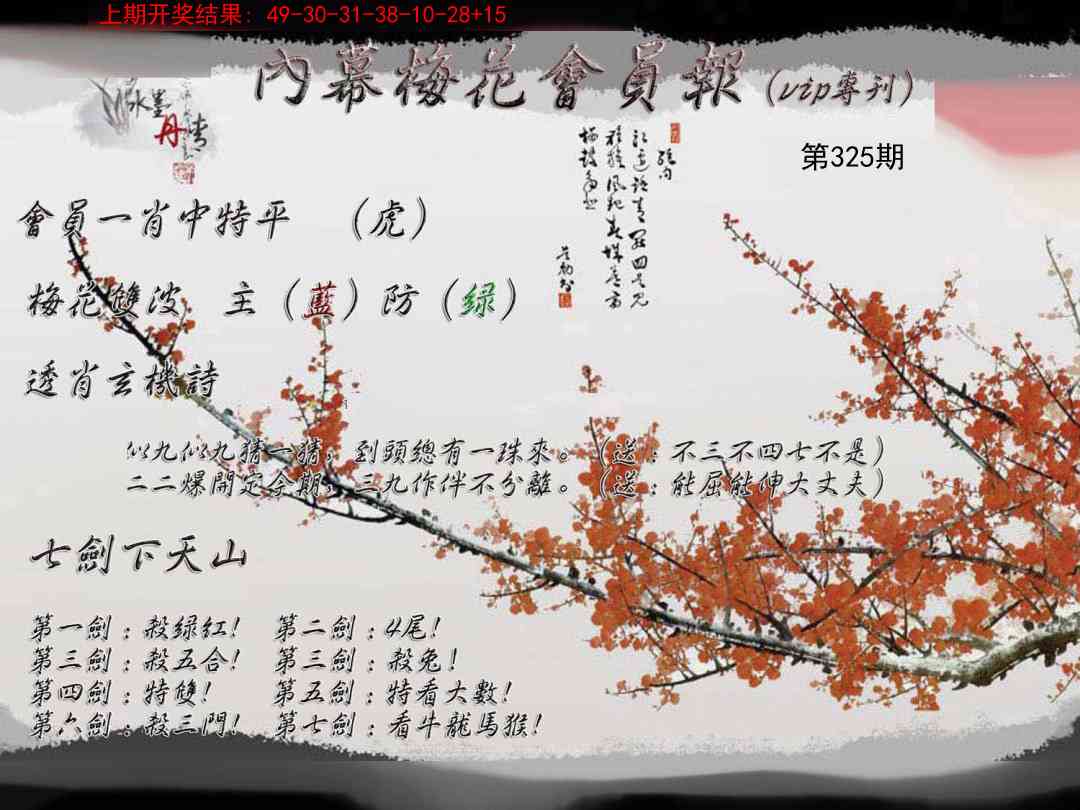 上期开奖结果: 49-30-31-38-10-28+15
內幕梅花會員報(vip專刊)
水墨丹情
第325期
會員一肖中特平 (虎)
梅花雙波 主(藍)防(绿)
透肖玄機詩
似九似九猜一猜，到頭總有一珠來。(送:不三不四七不是)
二二爆開定今期，三九作伴不分離。(送:能屈能伸大丈夫)
七劍下天山
第一劍:殺绿红! 第二劍:4尾!
第三劍:殺五合! 第三劍:殺兔!
第四劍:特雙! 第五劍:特看大數!
第六劍:殺三門! 第七劍:看牛龍馬猴!